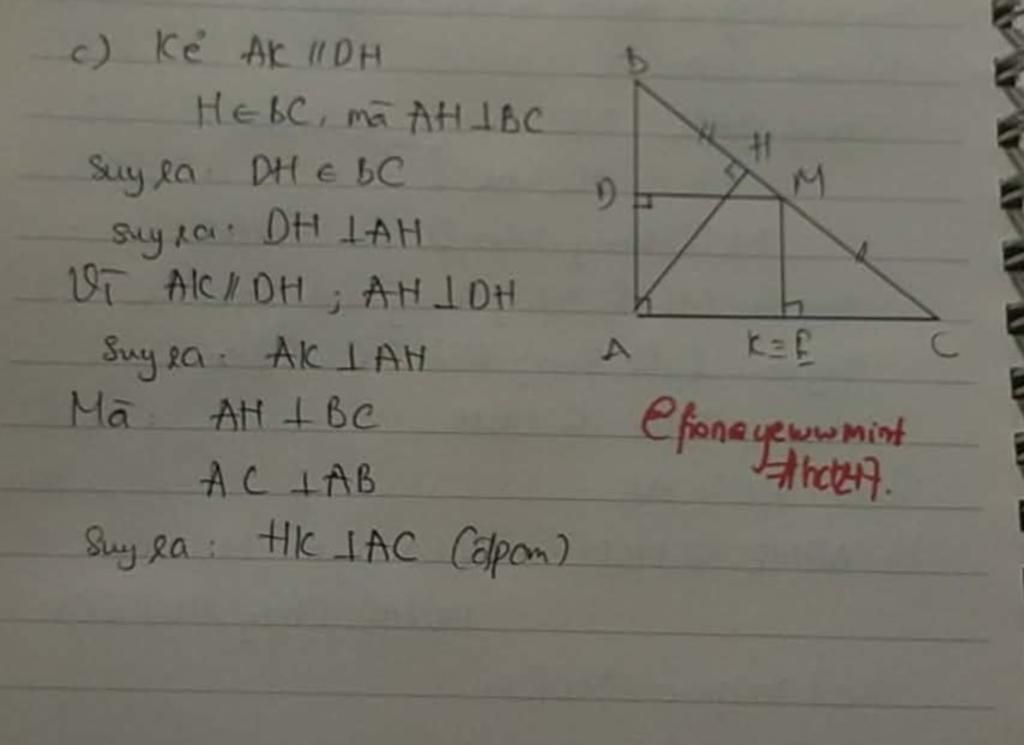 c) Kẻ AK // DH
H ∈ BC, mà AH ⊥ BC
Suy ra: DH ∈ BC
suy ra: DH ⊥ AH
Vì AK // DH ; AH ⊥ DH
Suy ra: AK ⊥ AH
Mà: AH ⊥ BC
AC ⊥ AB
Suy ra: HK ⊥ AC (đpcm)
B
H
D
M
A
K ≡ E
C